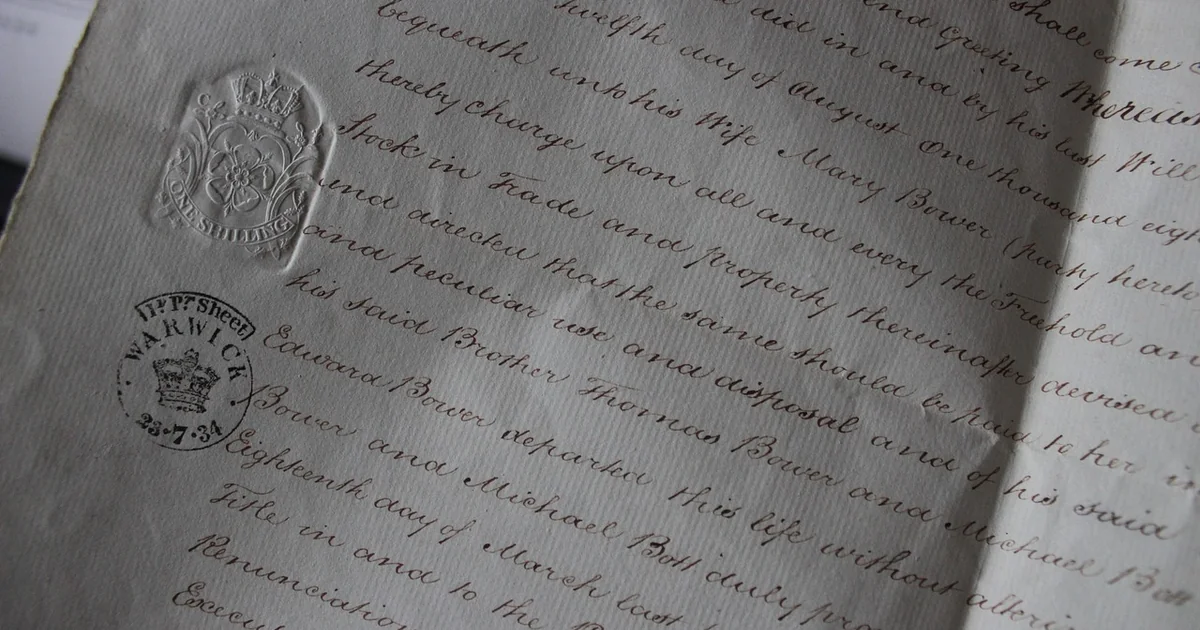 shall come
end Greeting Whereas
did in and by his last Will
twelfth day of August One thousand eigh
bequeath unto his Wife Mary Bower (party hereto
thereby charge upon all and every the Freehold an
Stock in Trade and property thereinafter devised
and directed that the same should be paid to her in
and peculiar use and disposal and of his said
his said Brother Thomas Bower and Michael Bott
Edward Bower departed this life without alterin
Bower and Michael Bott duly pro
Eighteenth day of March last
Title in and to the
Renunciation
Execu
ONE SHILLING
1r. Pr. Sheet
WARWICK
23·7·34